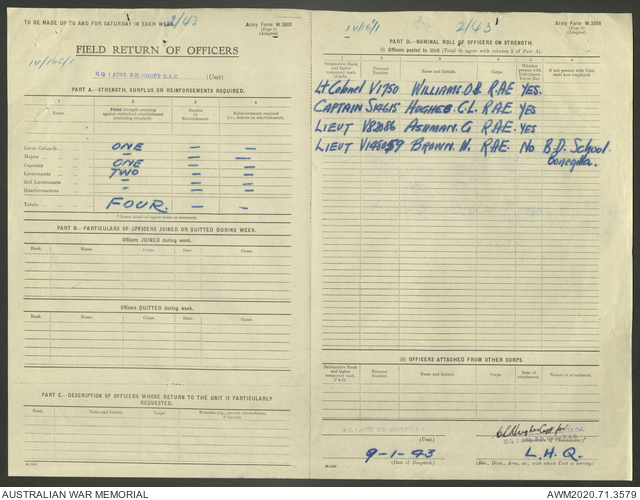 TO BE MADE UP TO AND FOR SATURDAY IN EACH WEEK. 2/43
Army Form W.3008
(Page 2)
(Adapted)
FIELD RETURN OF OFFICERS
IV/16C/1
(Unit)
PART A.—STRENGTH, SURPLUS OR REINFORCEMENTS REQUIRED.
1 2 3 4
Ranks. Posted strength counting against authorized establishment (excluding attached). Surplus to Establishment. Reinforcements required (i.e., deficits on establishment).
Lieut. Colonels ONE — —
Majors — — —
Captains ONE — —
Lieutenants TWO — —
2nd Lieutenants — — —
Quartermasters — — —
Totals FOUR. — —
* Insert detail of higher ranks as necessary.
PART B.—PARTICULARS OF OFFICERS JOINED OR QUITTED DURING WEEK.
Officers JOINED during week.
Rank. Name. Corps. Date. Cause.
Officers QUITTED during week.
Rank. Name. Corps. Date. Cause.
PART C.—DESCRIPTION OF OFFICERS WHOSE RETURN TO THE UNIT IS PARTICULARLY REQUESTED.
Rank. Name and Initials. Corps.
IV/16/1 2/43
Army Form W.3008
(Page 3)
(Adapted)
PART D.—NOMINAL ROLL OF OFFICERS ON STRENGTH.
(i) Officers posted to Unit (Total to agree with column 2 of Part A).
1 2 3 4 5 6
Substantive Rank and higher temporary rank if held. Personal Number. Name and Initials. Corps. Whether present with Unit (insert Yes or No). If not present with Unit, state how employed.
Lt Colonel V1750 WILLIAMS. D.B. RAE YES.
CAPTAIN HUGHES. C.L. RAE YES
LIEUT V82086 ASHMAN. G RAE. YES
LIEUT BROWN. N. RAE. NO B.D. School.
Bonegilla.
(ii) OFFICERS ATTACHED FROM OTHER CORPS.
Substantive Rank and higher temporary rank if held. Personal Number. Name and Initials. Corps. Date of attachment. Nature of attachment.
(Unit.)
9-1-43
(Date of Despatch)
L.H.Q.
(Bde., Divn., Area, etc., with which Unit is serving.)
AUSTRALIAN WAR MEMORIAL
AWM2020.71.3579